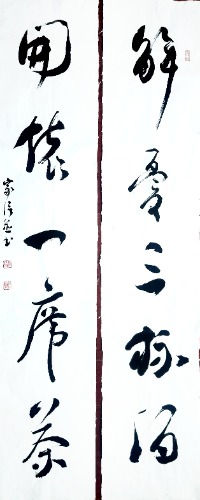 解憂三杯酒
開懷一席茶